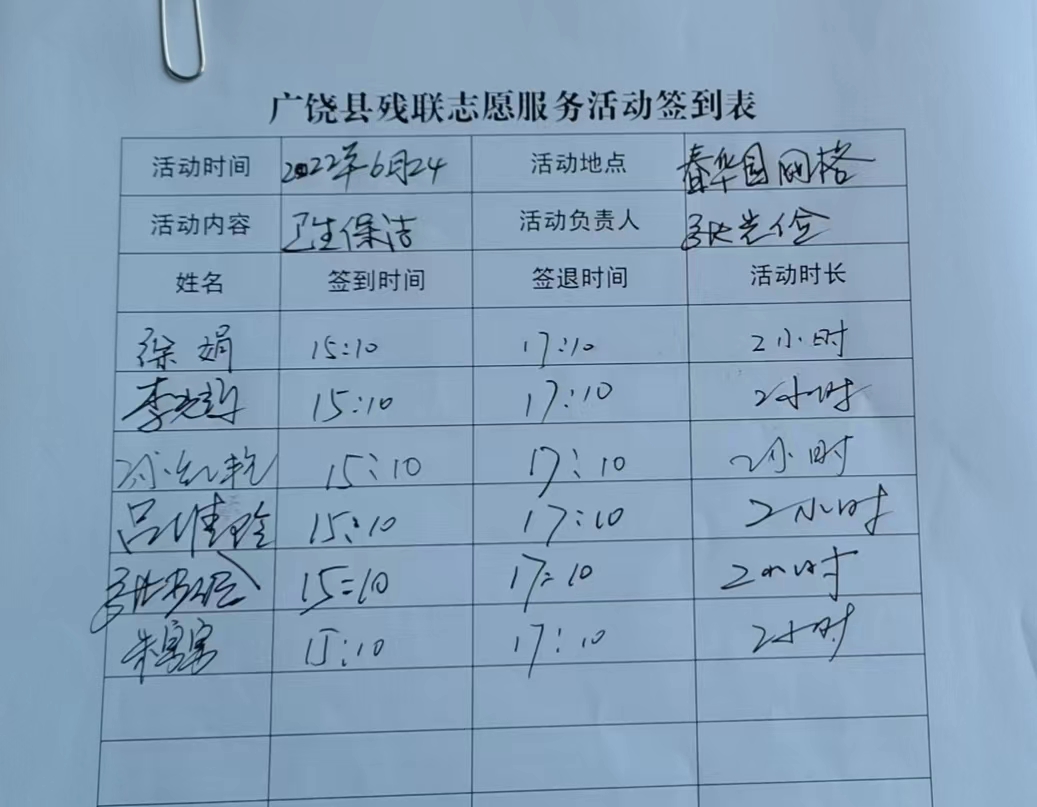 广饶县残联志愿服务活动签到表
活动时间 2022年6月24 活动地点 春华园网格
活动内容 卫生保洁 活动负责人 张光俭
姓名 签到时间 签退时间 活动时长
徐娟 15:10 17:10 2小时
李 15:10 17:10 2小时
孙红艳 15:10 17:10 2小时
吕佳玲 15:10 17:10 2小时
张 15:10 17:10 2小时
朱 15:10 17:10 2小时